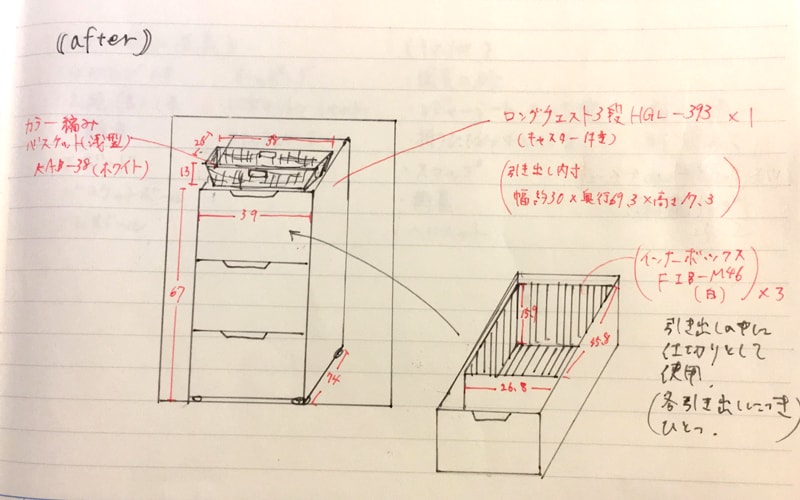 ((after))
カラー編み
バスケット(浅型)
KAB-38(ホワイト)
26
38
13
39
67
74
ロングチェスト3段 HGL-393 × 1
(キャスター付き)
(引き出し内寸
幅約30×奥行69.3×高さ17.3)
(インナーボックス
FIB-M46
(白)) × 3
15.9
35.8
26.8
引き出しの中に
仕切りとして
使用.
(各引き出しにつき
ひとつ.)